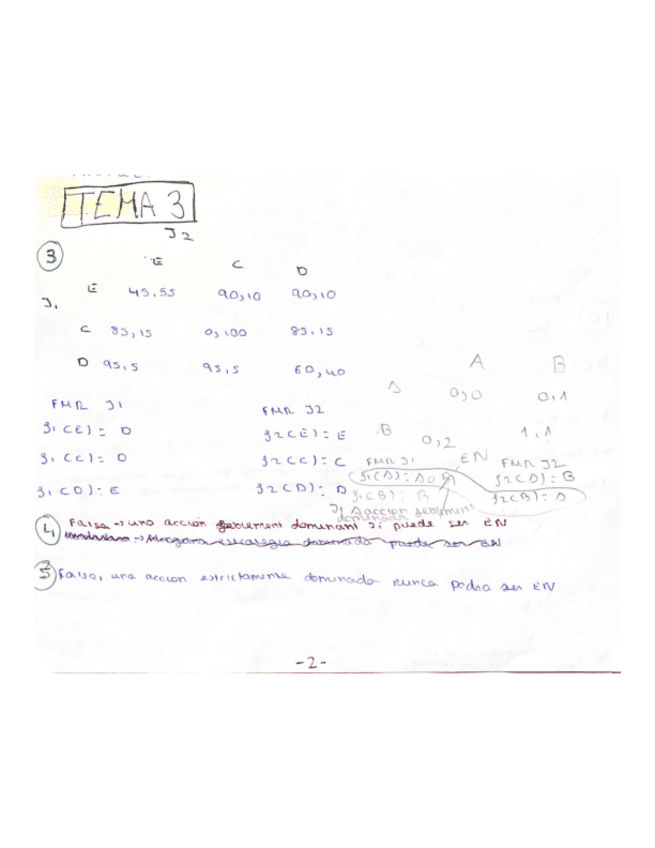 TEMA 3
J2
3
E C D
J1 E 45,55 90,10 90,10
C 85,15 0,100 85,15
D 95,5 95,5 60,40
A B
A 0,0 0,1
B 0,2 1,1
FMR J1 FMR J2
J1(E)= D J2(E)= E
J1(C)= D J2(C)= C
J1(D)= E J2(D)= D
FMR J1 EN FMR J2
J1(A)= A o B J2(A)= B
J1(B)= B J2(B)= A
J1 A accion
4 Falsa → una acción dominant si puede ser EN
→ Ninguna estrategia dominada puede ser EN
5 Falso, una accion estrictamente dominada nunca podra ser EN
-2-